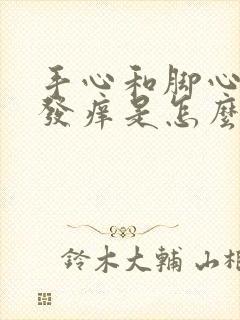 手心和脚心
發痒是怎麼
鈴木大輔 山相